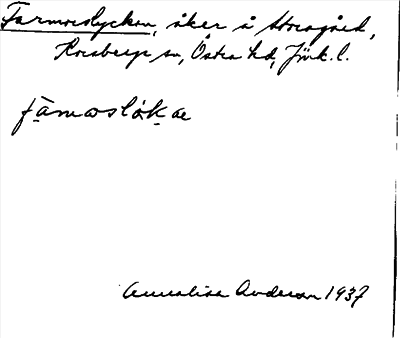 Farmorslyckan, åker å Storegård,
Korsberga sn, Östra hd, Jönk. l.
fàmωslókæ
Annalisa Anderson 1937